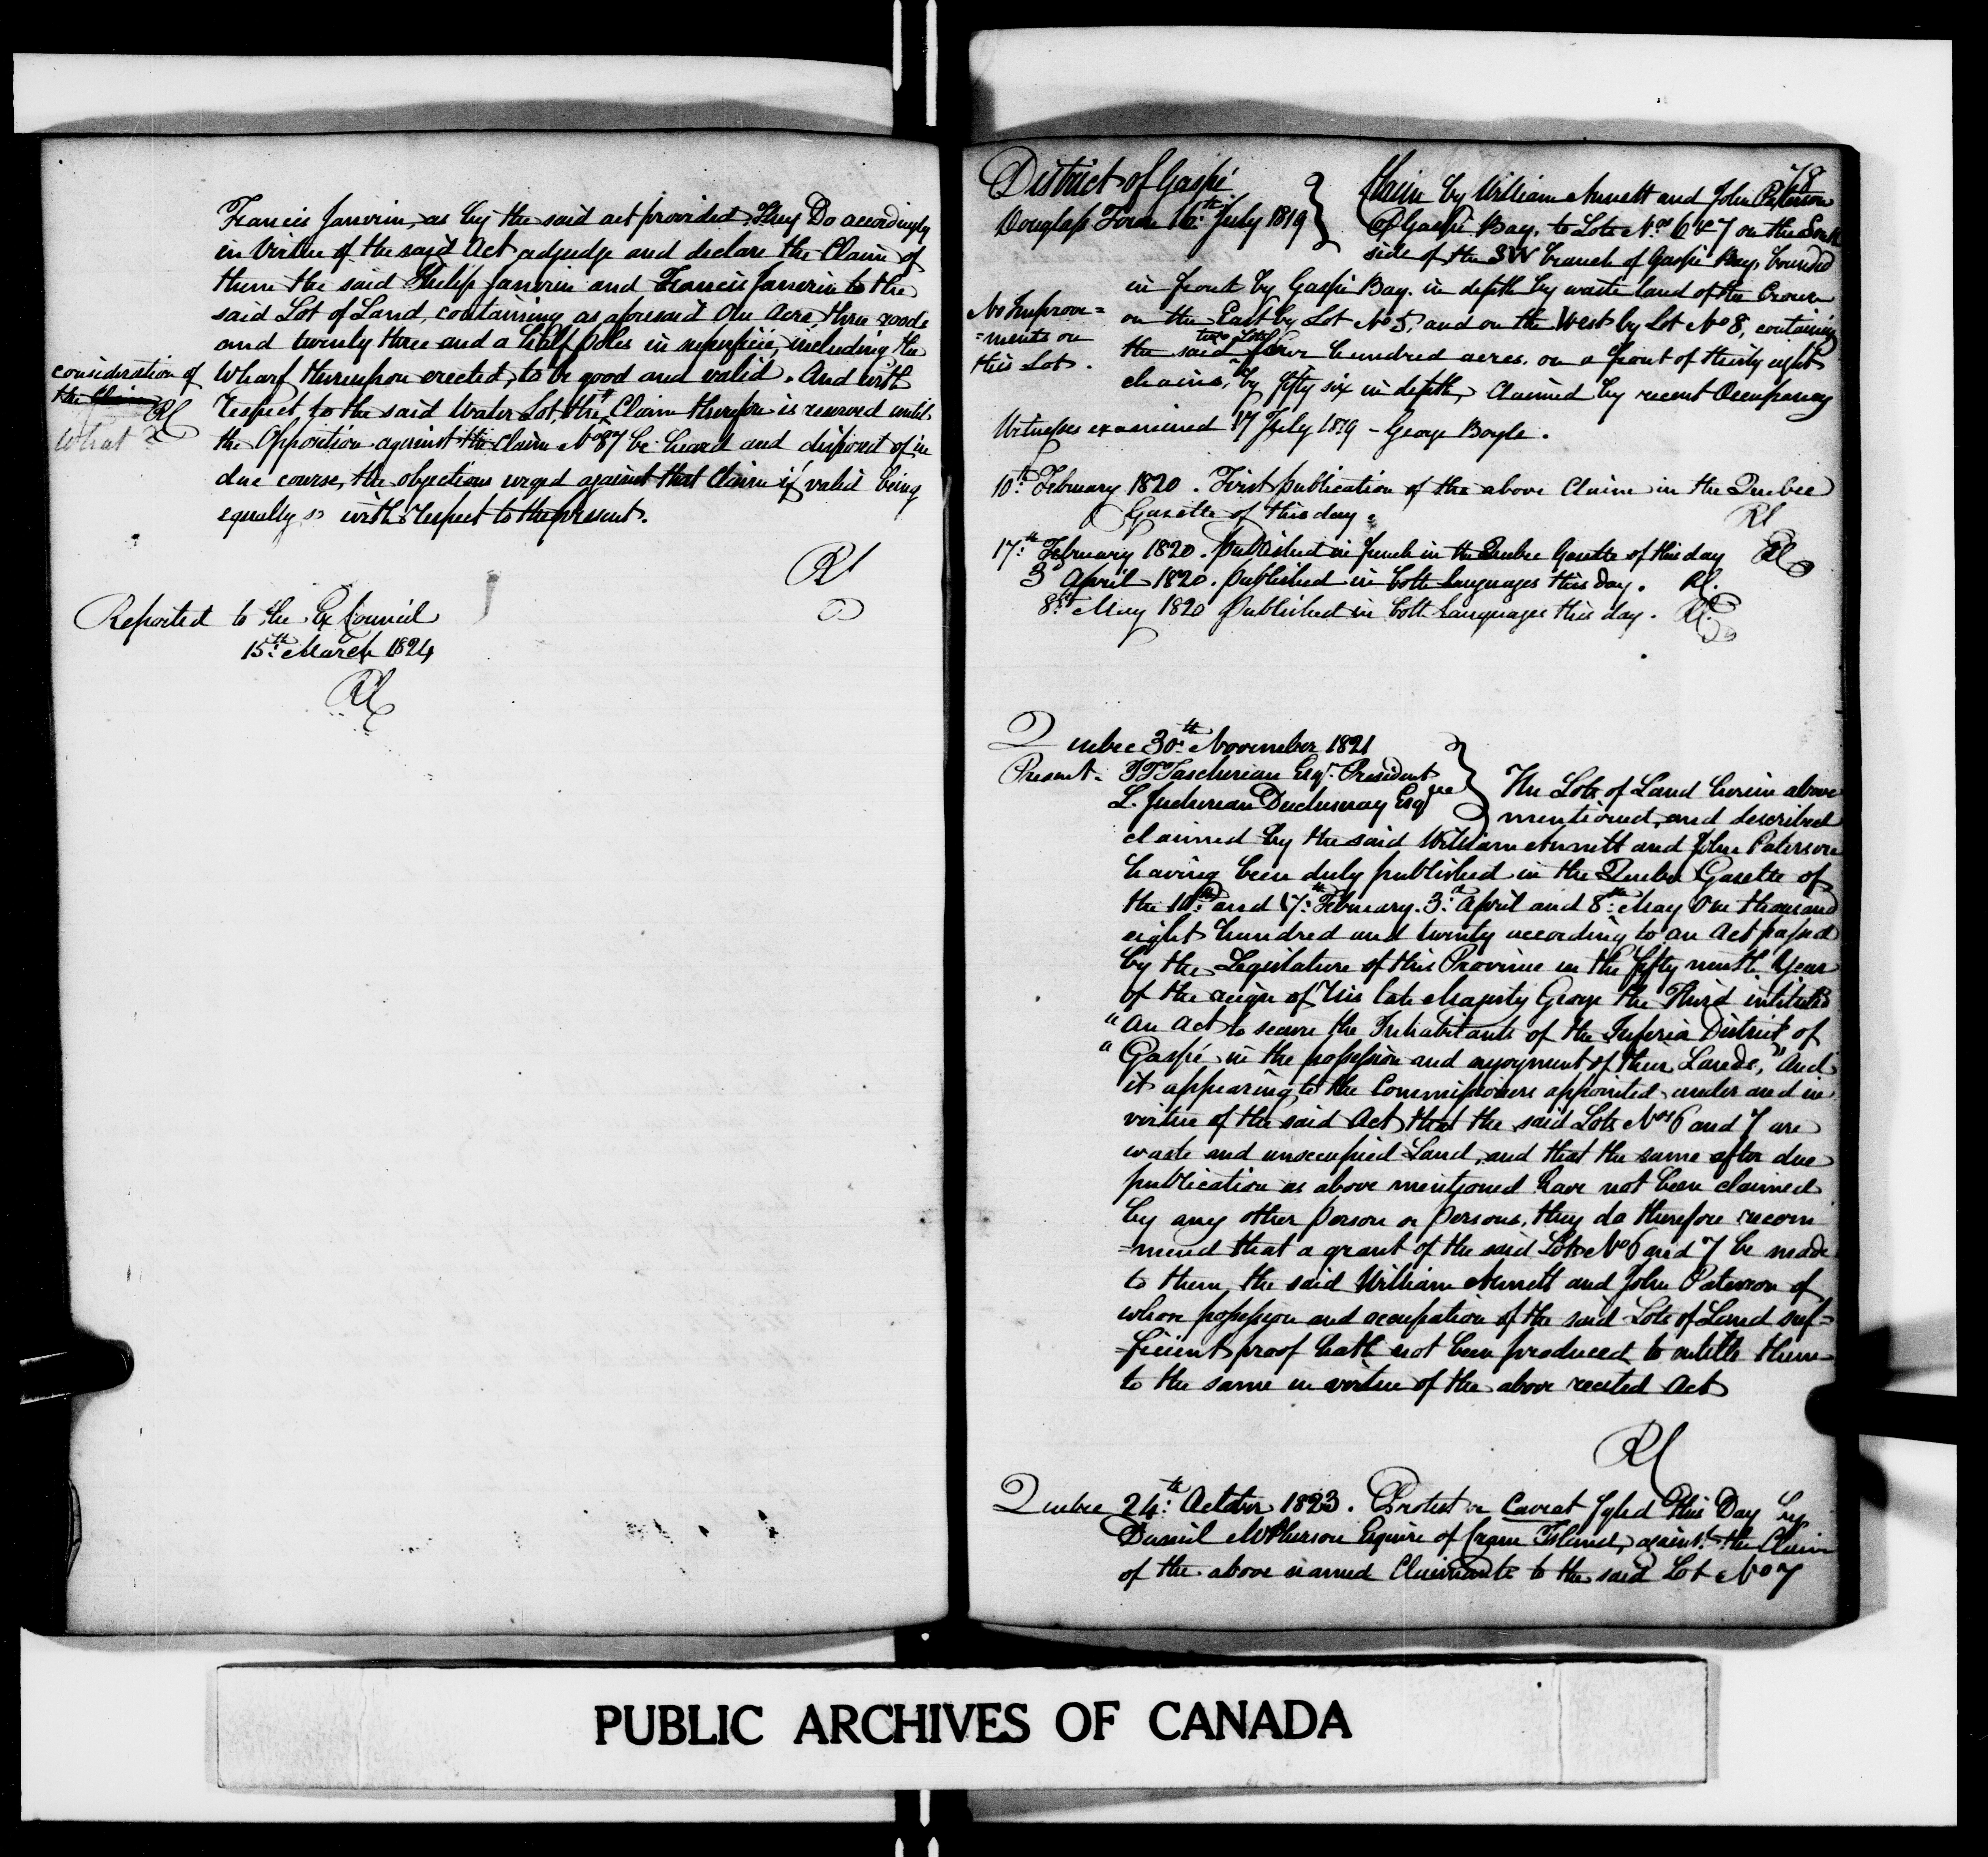 Francis Janvrin, as by the said act provided They Do accordingly
in Virtue of the said Act adjudge and declare the Claim of
them the said Philip Janvrin and Francis Janvrin to the
said Lot of Land, containing as aforesaid One Acre, three roods
and twenty three and a half poles in superficie, including the
consideration of
the Claim
Rl
What
Wharf thereupon erected, to be good and valid. And with
respect, to the said Water Lot, the Claim therefore is reserved until
the Opposition against the Claim No 87 be heard and disposed of in
due course, the objections urged against that Claim if valid being
equally so with respect to the present.
Rl
Reported to the Ex Council
15th March 1824
Rl
78
District of Gaspé
Douglass Town 16th July 1819
Claim by William Annett and John Paterson
of Gaspé Bay, to Lots Nos 6 & 7 on the South
side of the SW branch of Gaspé Bay, bounded
in front by Gaspé Bay. in depth by waste land of the Crown
on the East by Lot No 5, and on the West by Lot No 8, containing
No Improve=
=ments on
this Lot.
two Lots
the said four hundred acres. on a front of thirty eight
chains, by fifty six in depth, Claimed by recent Occupancy
Witnesses examined 17 July 1819 - George Boyle.
10th February 1820. First publication of the above Claim in the Quebec
Gazette of this day. Rl
17th February 1820. Published in french in the Quebec Gazette of this day Rl
3d April 1820. published in both languages this day. Rl.
8th May 1820 Published in both languages this day. Rl.
Quebec 30th November 1821
Present. J T Taschereau Esqr. President
L. Juchereau Duchesnay Esqre
The Lots of Land herein above
mentioned, and described
claimed by the said William Annett and John Paterson
having been duly published in the Quebec Gazette of
the 10th and 17th February. 3d April and 8th May One thousand
eight hundred and twenty according to an Act passed
by the Legislature of this Province in the fifty ninth Year
of the reign of His late Majesty George the Third intituled
"An Act to secure the Inhabitants of the Inferior District of
"Gaspé in the possession and enjoyment of their Lands," And
it appearing to the Commissioners appointed under and in
virtue of the said Act that the said Lots Nos 6 and 7 are
waste and unoccupied Land, and that the same after due
publication as above mentioned have not been claimed
by any other person or persons, they do therefore recom
=mend that a grant of the said Lots No 6 and 7 be made
to them, the said William Annett and John Paterson of
whose possession and occupation of the said Lots of Land suf=
=ficient proof hath not been produced to entitle them
to the same in virtue of the above recited Act
Rl
Quebec 24th October 1823. Protest or Caveat fyled This Day by
Daniel McPherson Esquire of Crane Island, against the Claim
of the above named Claimants to the said Lot No 7
PUBLIC ARCHIVES OF CANADA